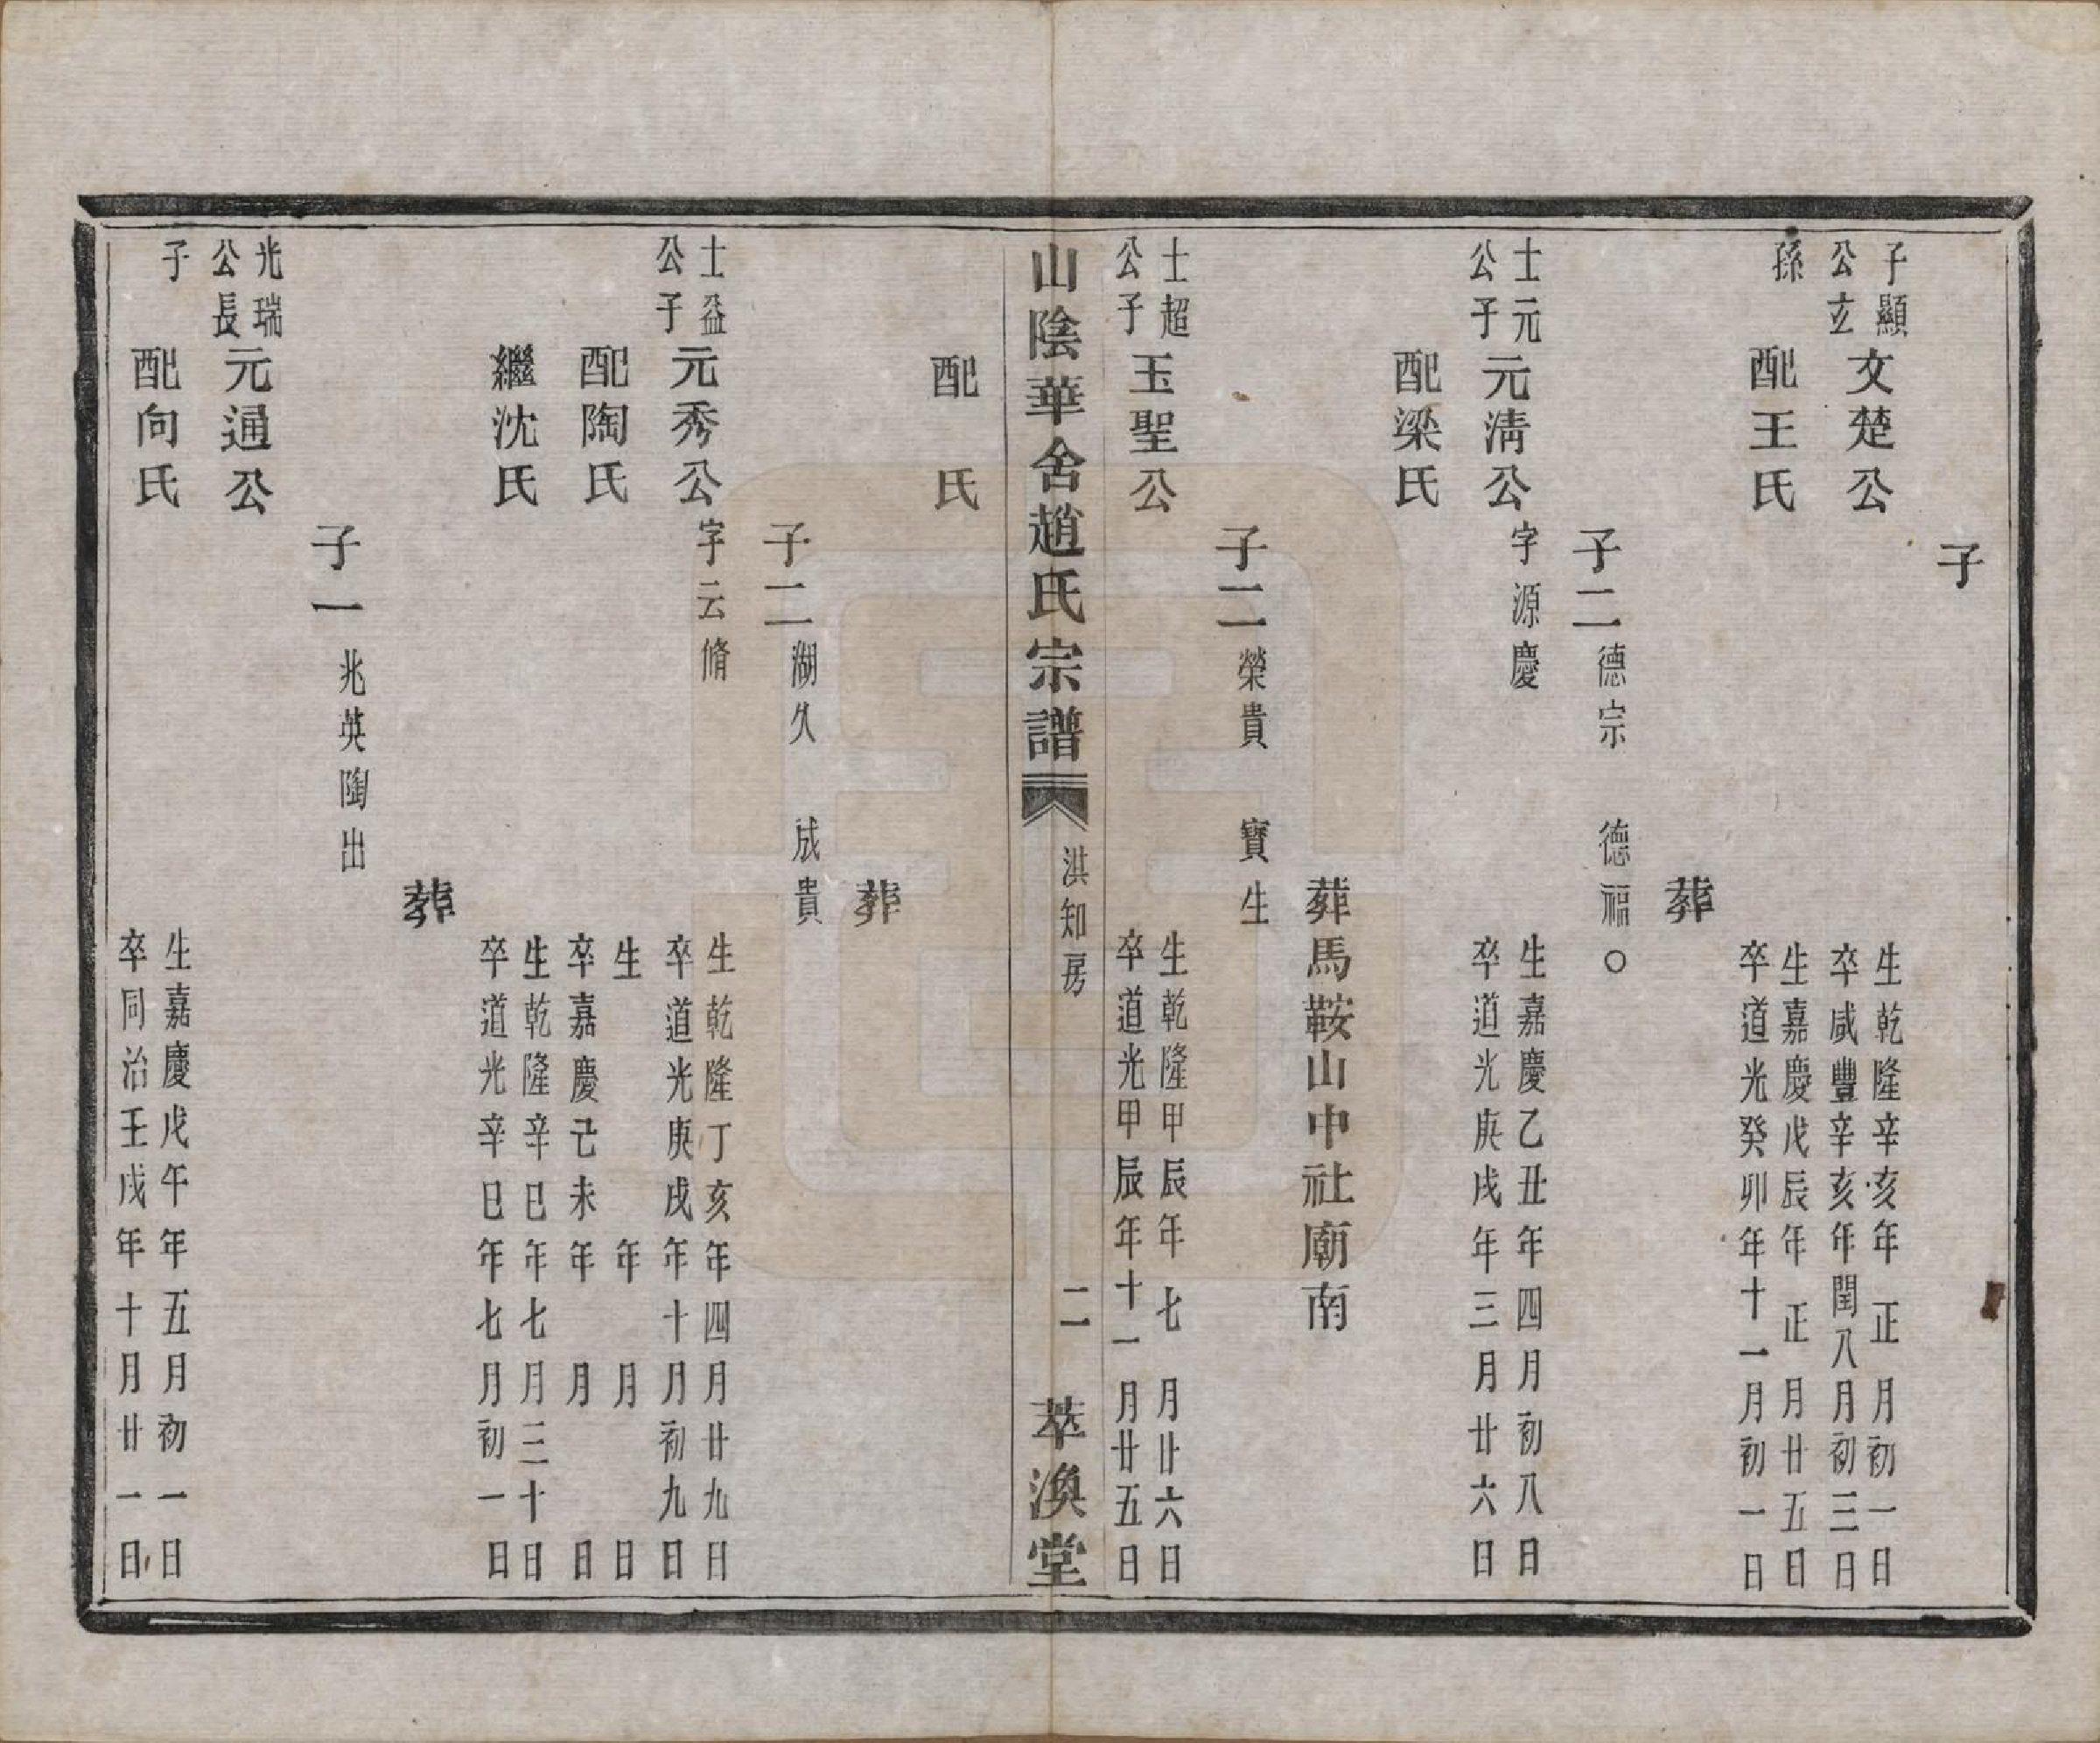 子
子顯公玄孫
文楚公
生乾隆辛亥年正月初一日
卒咸豐辛亥年閏八月初三日
配王氏
生嘉慶戊辰年正月廿五日
卒道光癸卯年十一月初一日
葬
子二德宗 德福○
士元公子
元淸公字源慶
生嘉慶乙丑年四月初八日
卒道光庚戌年三月廿六日
配梁氏
葬馬鞍山中社廟南
子二榮貴 寶生
士超公子
玉聖公
生乾隆甲辰年七月廿六日
卒道光甲辰年十一月廿五日
山陰華舍趙氏宗譜 洪知房 二 萃渙堂
配 氏
葬
子二湖久 成貴
士益公子
元秀公字云脩
生乾隆丁亥年四月廿九日
卒道光庚戌年十月初九日
配陶氏
生 年 月 日
卒嘉慶己未年 月 日
繼沈氏
生乾隆辛巳年七月三十日
卒道光辛巳年七月初一日
葬
子一兆英陶出
光瑞公長子
元通公
生嘉慶戊午年五月初一日
卒同治壬戌年十月廿一日
配向氏